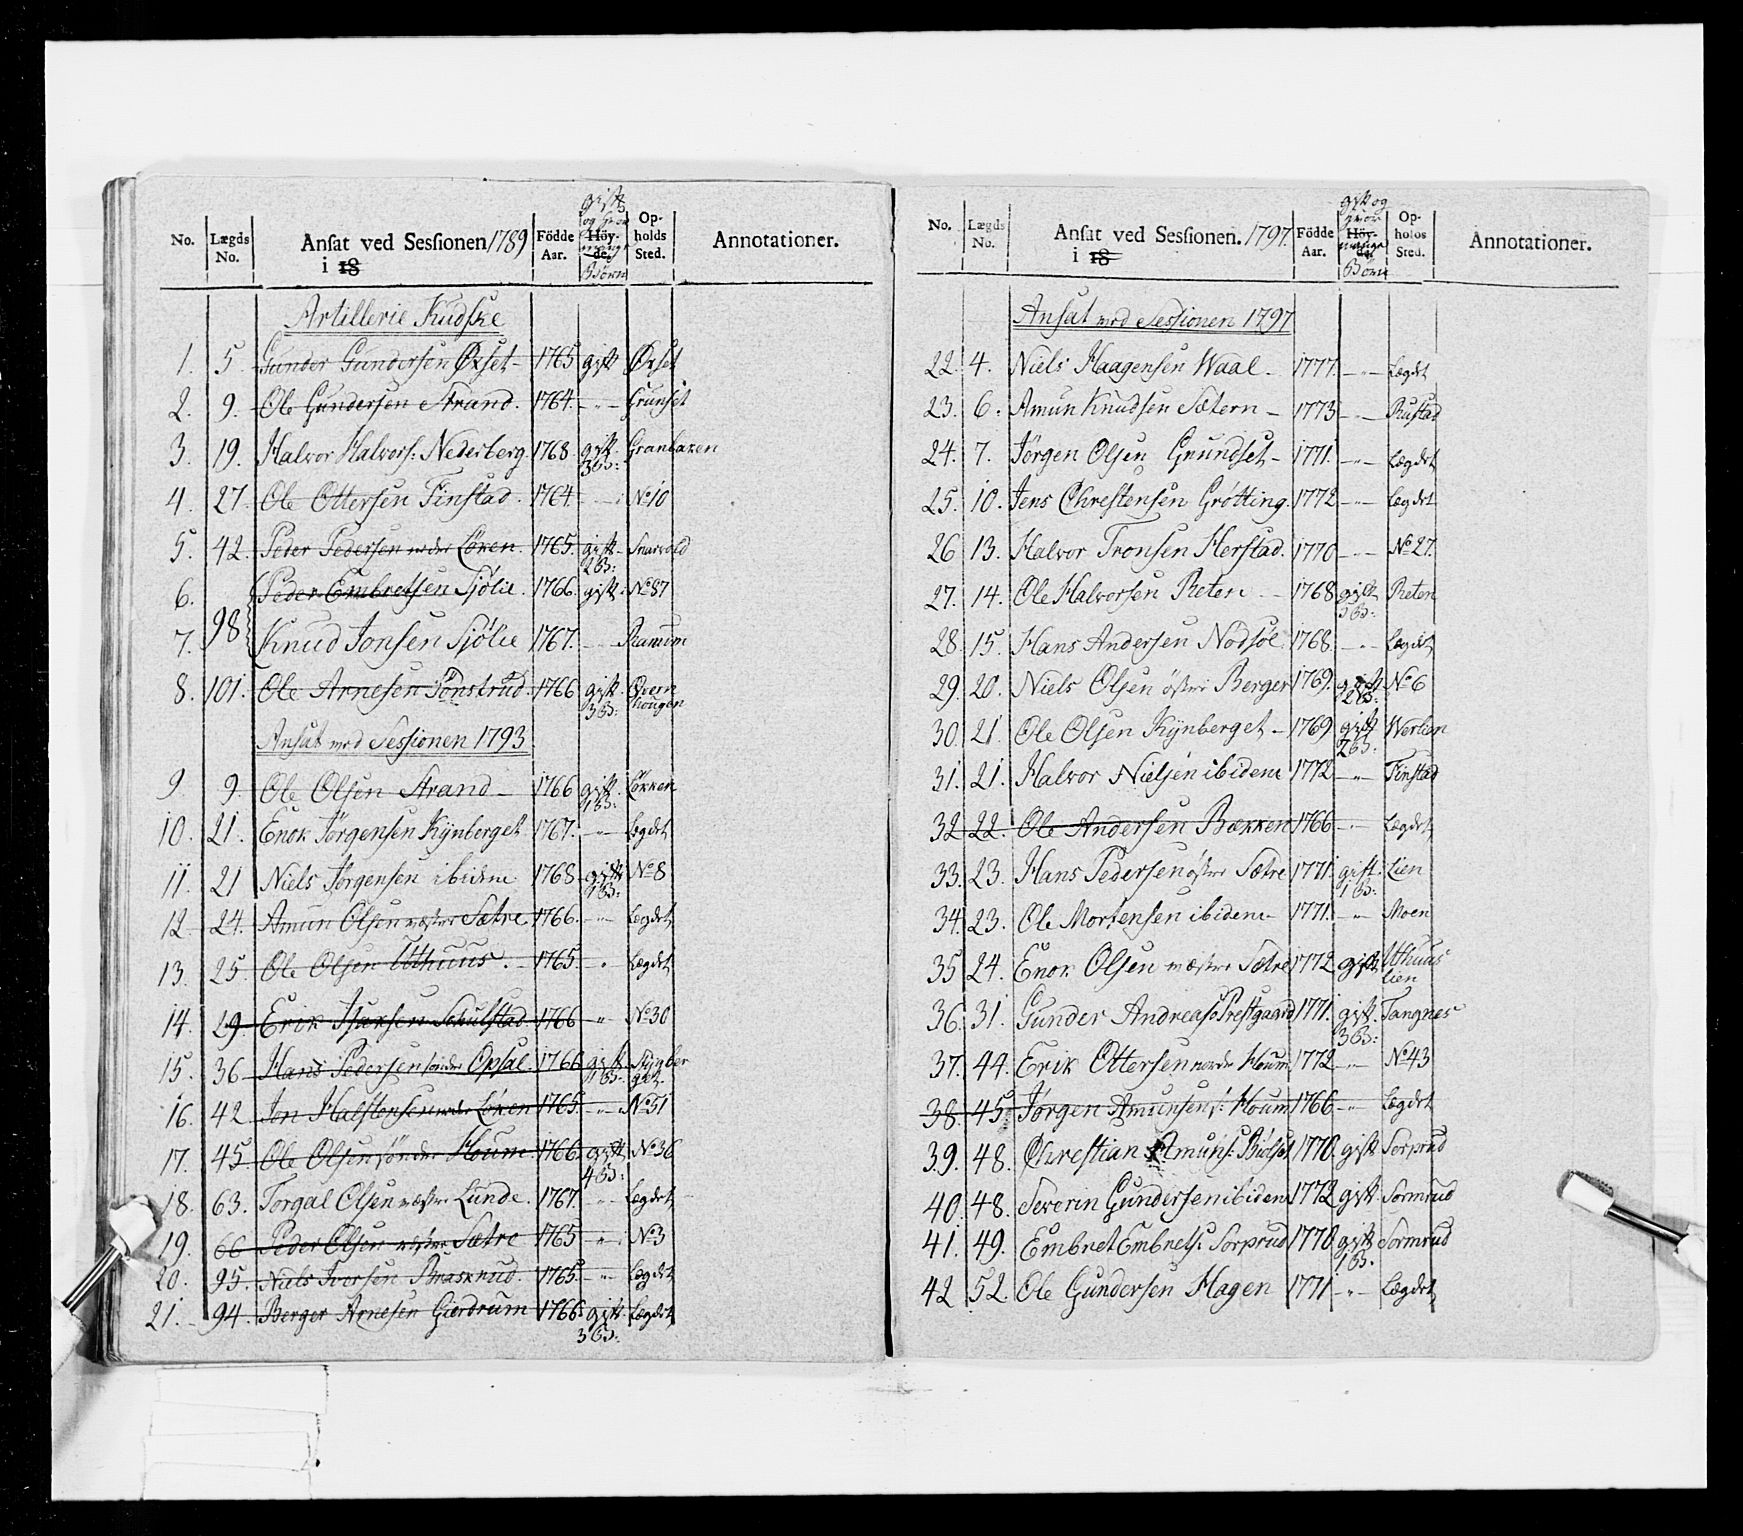 No. Lægds No. Ansat ved Sessionen 1789 i 18 Födde Aar. gift og hvor mange Börn Höyde. Opholds Sted. Annotationer.
Artillerie Kudske
1. 5. Gunder Gundersen Øxset 1765 gift Øxset
2. 9. Ole Gundersen Strand. 1764. -"- Grunset
3. 19. Halvor Halvors: Nederberg 1768 gift 3 B: Granbaxen
4. 27. Ole Ottersen Finstad. 1764. - - No 10
5. 42. Peder Pedersen neder Löxen. 1765. gift 2 B: Snarvold
6. 98 Peder Embretsen Sjölie 1766. gift No 87
7. Knud Jonsen Sjölie 1767. - - Ramum
8. 101. Ole Arnesen Tönstrud. 1766 gift 3 B: Øvern hougen
Ansat ved Sessionen 1793
9. 9. Ole Olsen Strand 1766 gift 1 B: Löxxen
10. 21. Enok Jörgensen Kÿnberget 1767. -"- Lægdet
11. 21 Niels Jörgensen ibidem 1768 gift 1 B: No 8
12 24. Amun Olsen væstre Sætre 1766. -"- Lægdet
13. 25 Ole Olsen Uthuus. 1765. " Lægdet
14. 29. Erik Isaksen Schulstad 1766 " No 30
15. 36 Hans Pedersen sönder Opsal. 1766 gift 1 B: Kÿnber get
16. 42 Jon Halstensen neder Löxen 1765. -"- No 51
17. 45 Ole Olsen sönder Houm 1766. gift 4 B: No 36
18. 63. Torgal Olsen væstre Lunde. 1767. " Lægdet
19. 66 Peder Olsen væstre Sætre 1765 " No 3
20. 95. Niels Iversen Braskrud. 1765. " Lægdet
21. 94. Berger Arnesen Gierdrum 1766. gift 3 B: Lægdet
No. Lægds No. Ansat ved Sessionen. 1797. i 18 Födde Aar. gift og hvor mange Börn Höyde. Opholds Sted. Annotationer.
Ansat ved Sessionen 1797
22. 4. Niels Haagensen Waal. 1777. -"- Lægdet
23. 6. Amun Knudsen Sætern 1773 - - Rustad
24. 7. Jörgen Olsen Grundset 1771. -"- Lægdet
25. 10. Jens Chrestensen Gröttting. 1772 - - Lægdet
26 13. Halvor Tronsen Herstad. 1770 - - No 27.
27. 14. Ole Halvorsen Reten 1768 gift 3 B: Reten
28. 15. Hans Andersen Nordsöe 1768. -"- Lægdet
29. 20. Niels Olsen östre Berger 1769. gift 2 B: No 6
30. 21. Ole Olsen Kÿnberget 1769 gift 2 B: Worlien
31. 21. Halvor Nielsen ibidem 1772 -"- Finstad
32 22. Ole Andersen Bækken 1766 -"- Lægdet
33. 23. Hans Pedersen östre Sætre 1771. gift. 1 B: Lien
34. 23. Ole Mortensen ibidem 1771. -"- Moen
35 24. Enok Olsen væstre Sætre 1772 gift Uthuus lien
36. 31. Gunder Andreas: Prestgaard 1771. gift. 3 B: Tangnes
37. 44. Erik Ottersen nordre Houm 1772 -"- No 43
38 45. Jörgen Amunsen s: Houm 1766 -"- Lægdet
39. 48. Chrestian Amuns: Biölset 1770. gift Sorprud
40. 48. Severin Gundersen ibidem 1772 gift Sormrud
41. 49. Embret Embrets: Sorprud 1770 gift 1 B. Sormrud
42 52 Ole Gundersen Hagen 1771 -"- Lægdet